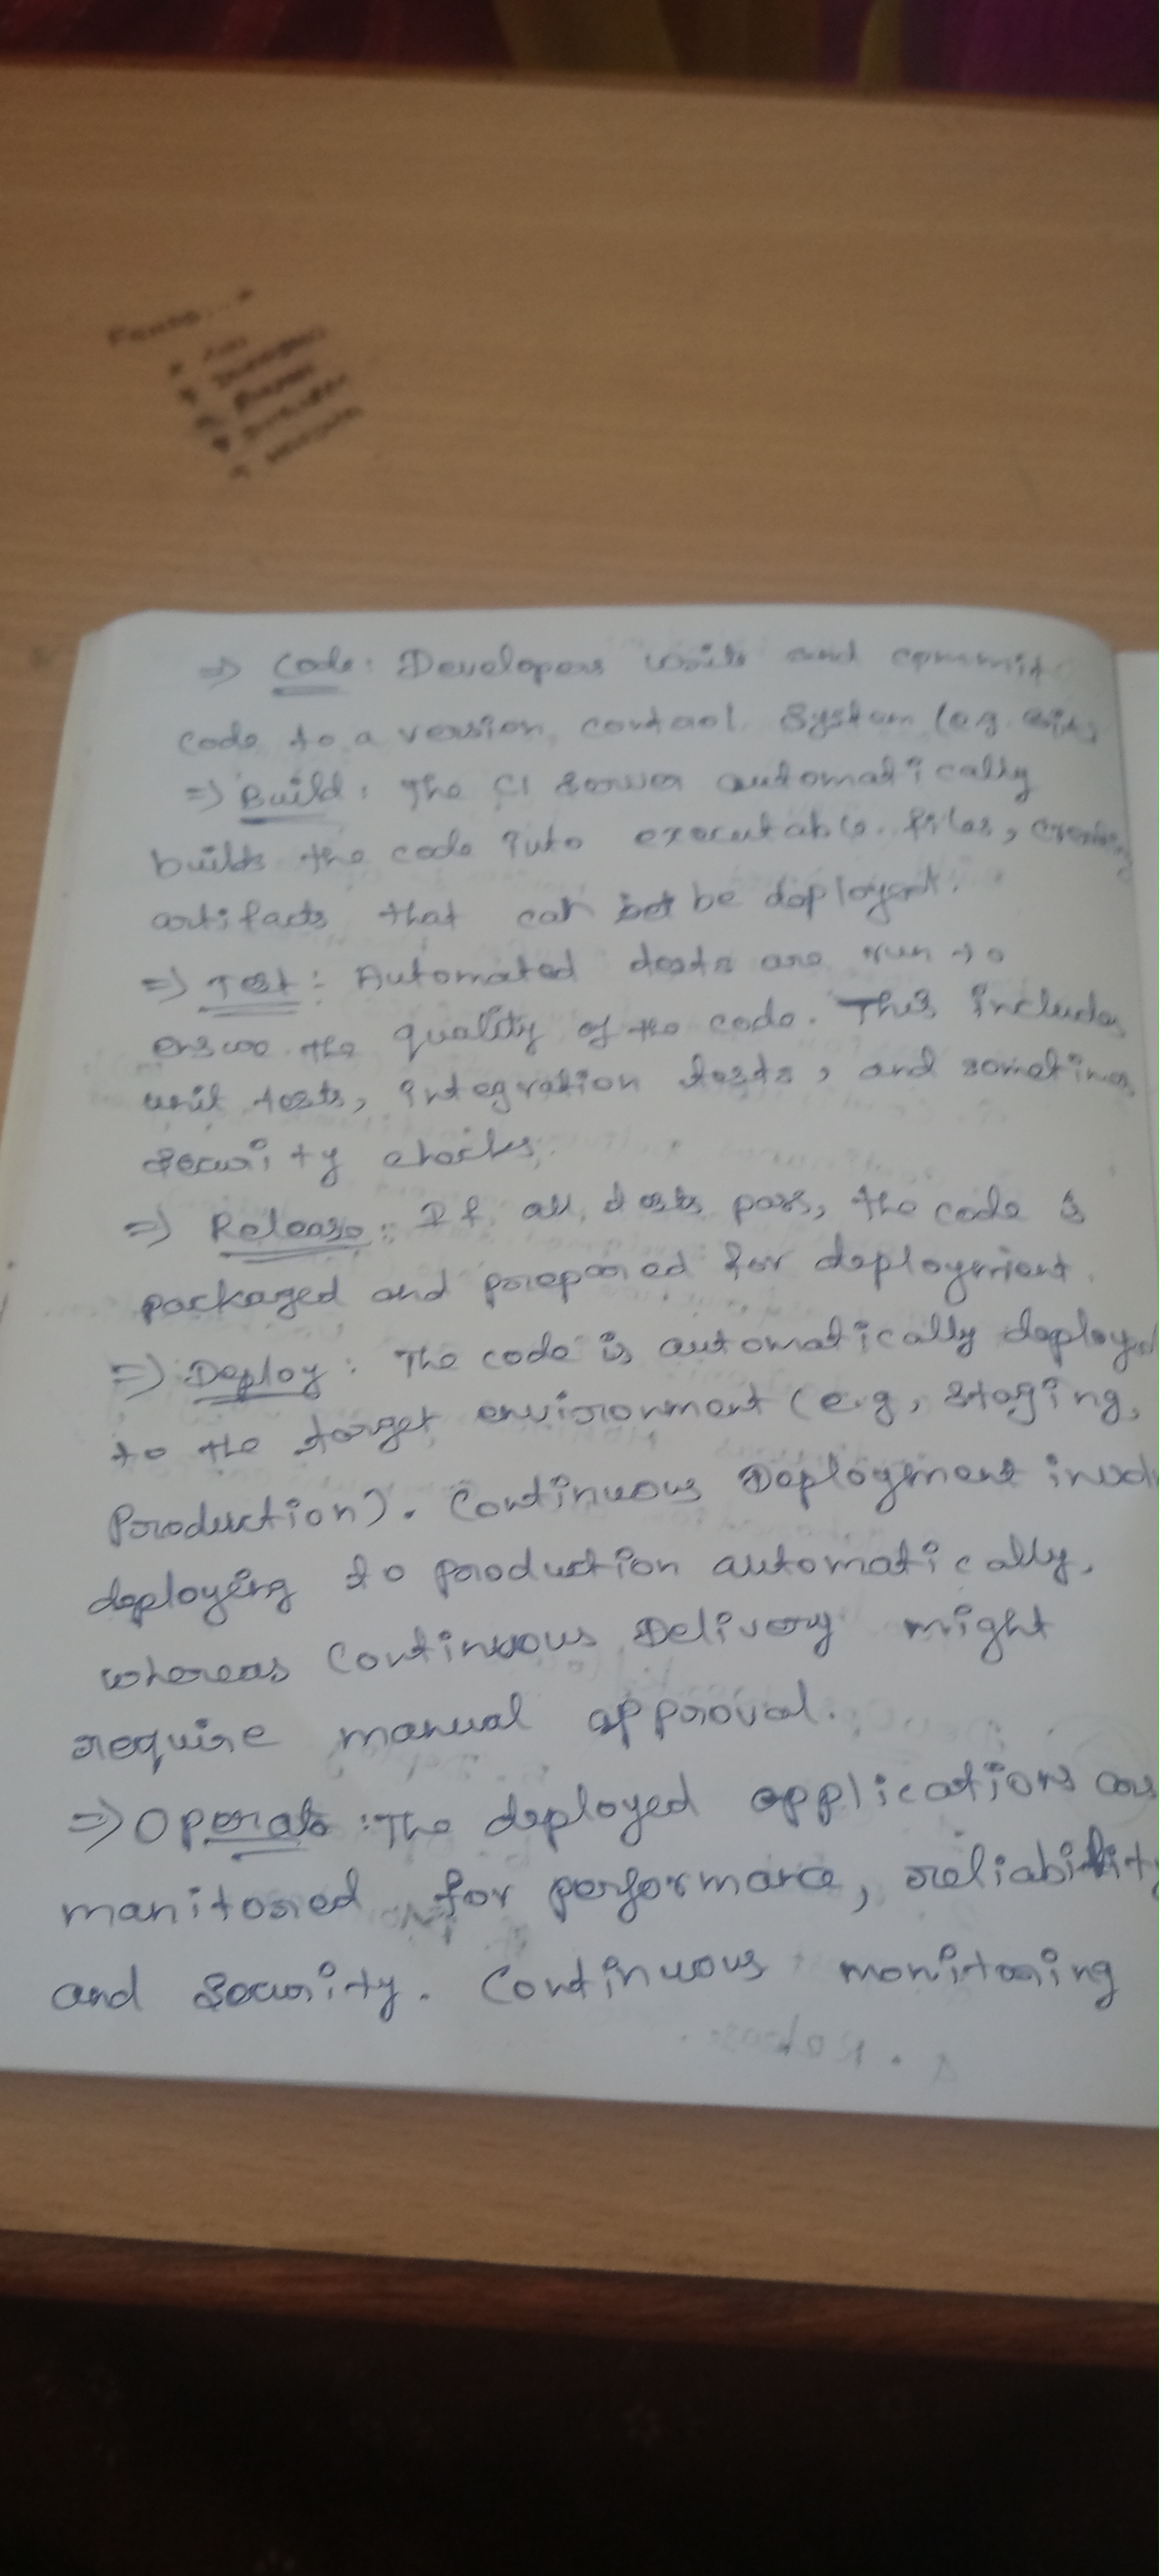 ⇒ Code: Developers write and commit
code to a version control system (e.g. Git,
⇒ Build: The CI server automatically
builds the code into executable files, creating
artifacts that can be deployed.
⇒ Test: Automated tests are run to
ensure the quality of the code. This includes
unit tests, integration tests, and sometimes
security checks.
⇒ Release: If all tests pass, the code is
packaged and prepared for deployment.
⇒ Deploy: The code is automatically deployed
to the target environment (e.g, staging,
Production). Continuous Deployment invol
deploying to production automatically,
whereas Continuous Delivery might
require manual approval.
⇒ Operate: The deployed applications are
manitored for performance, reliability
and security. Continuous monitoring